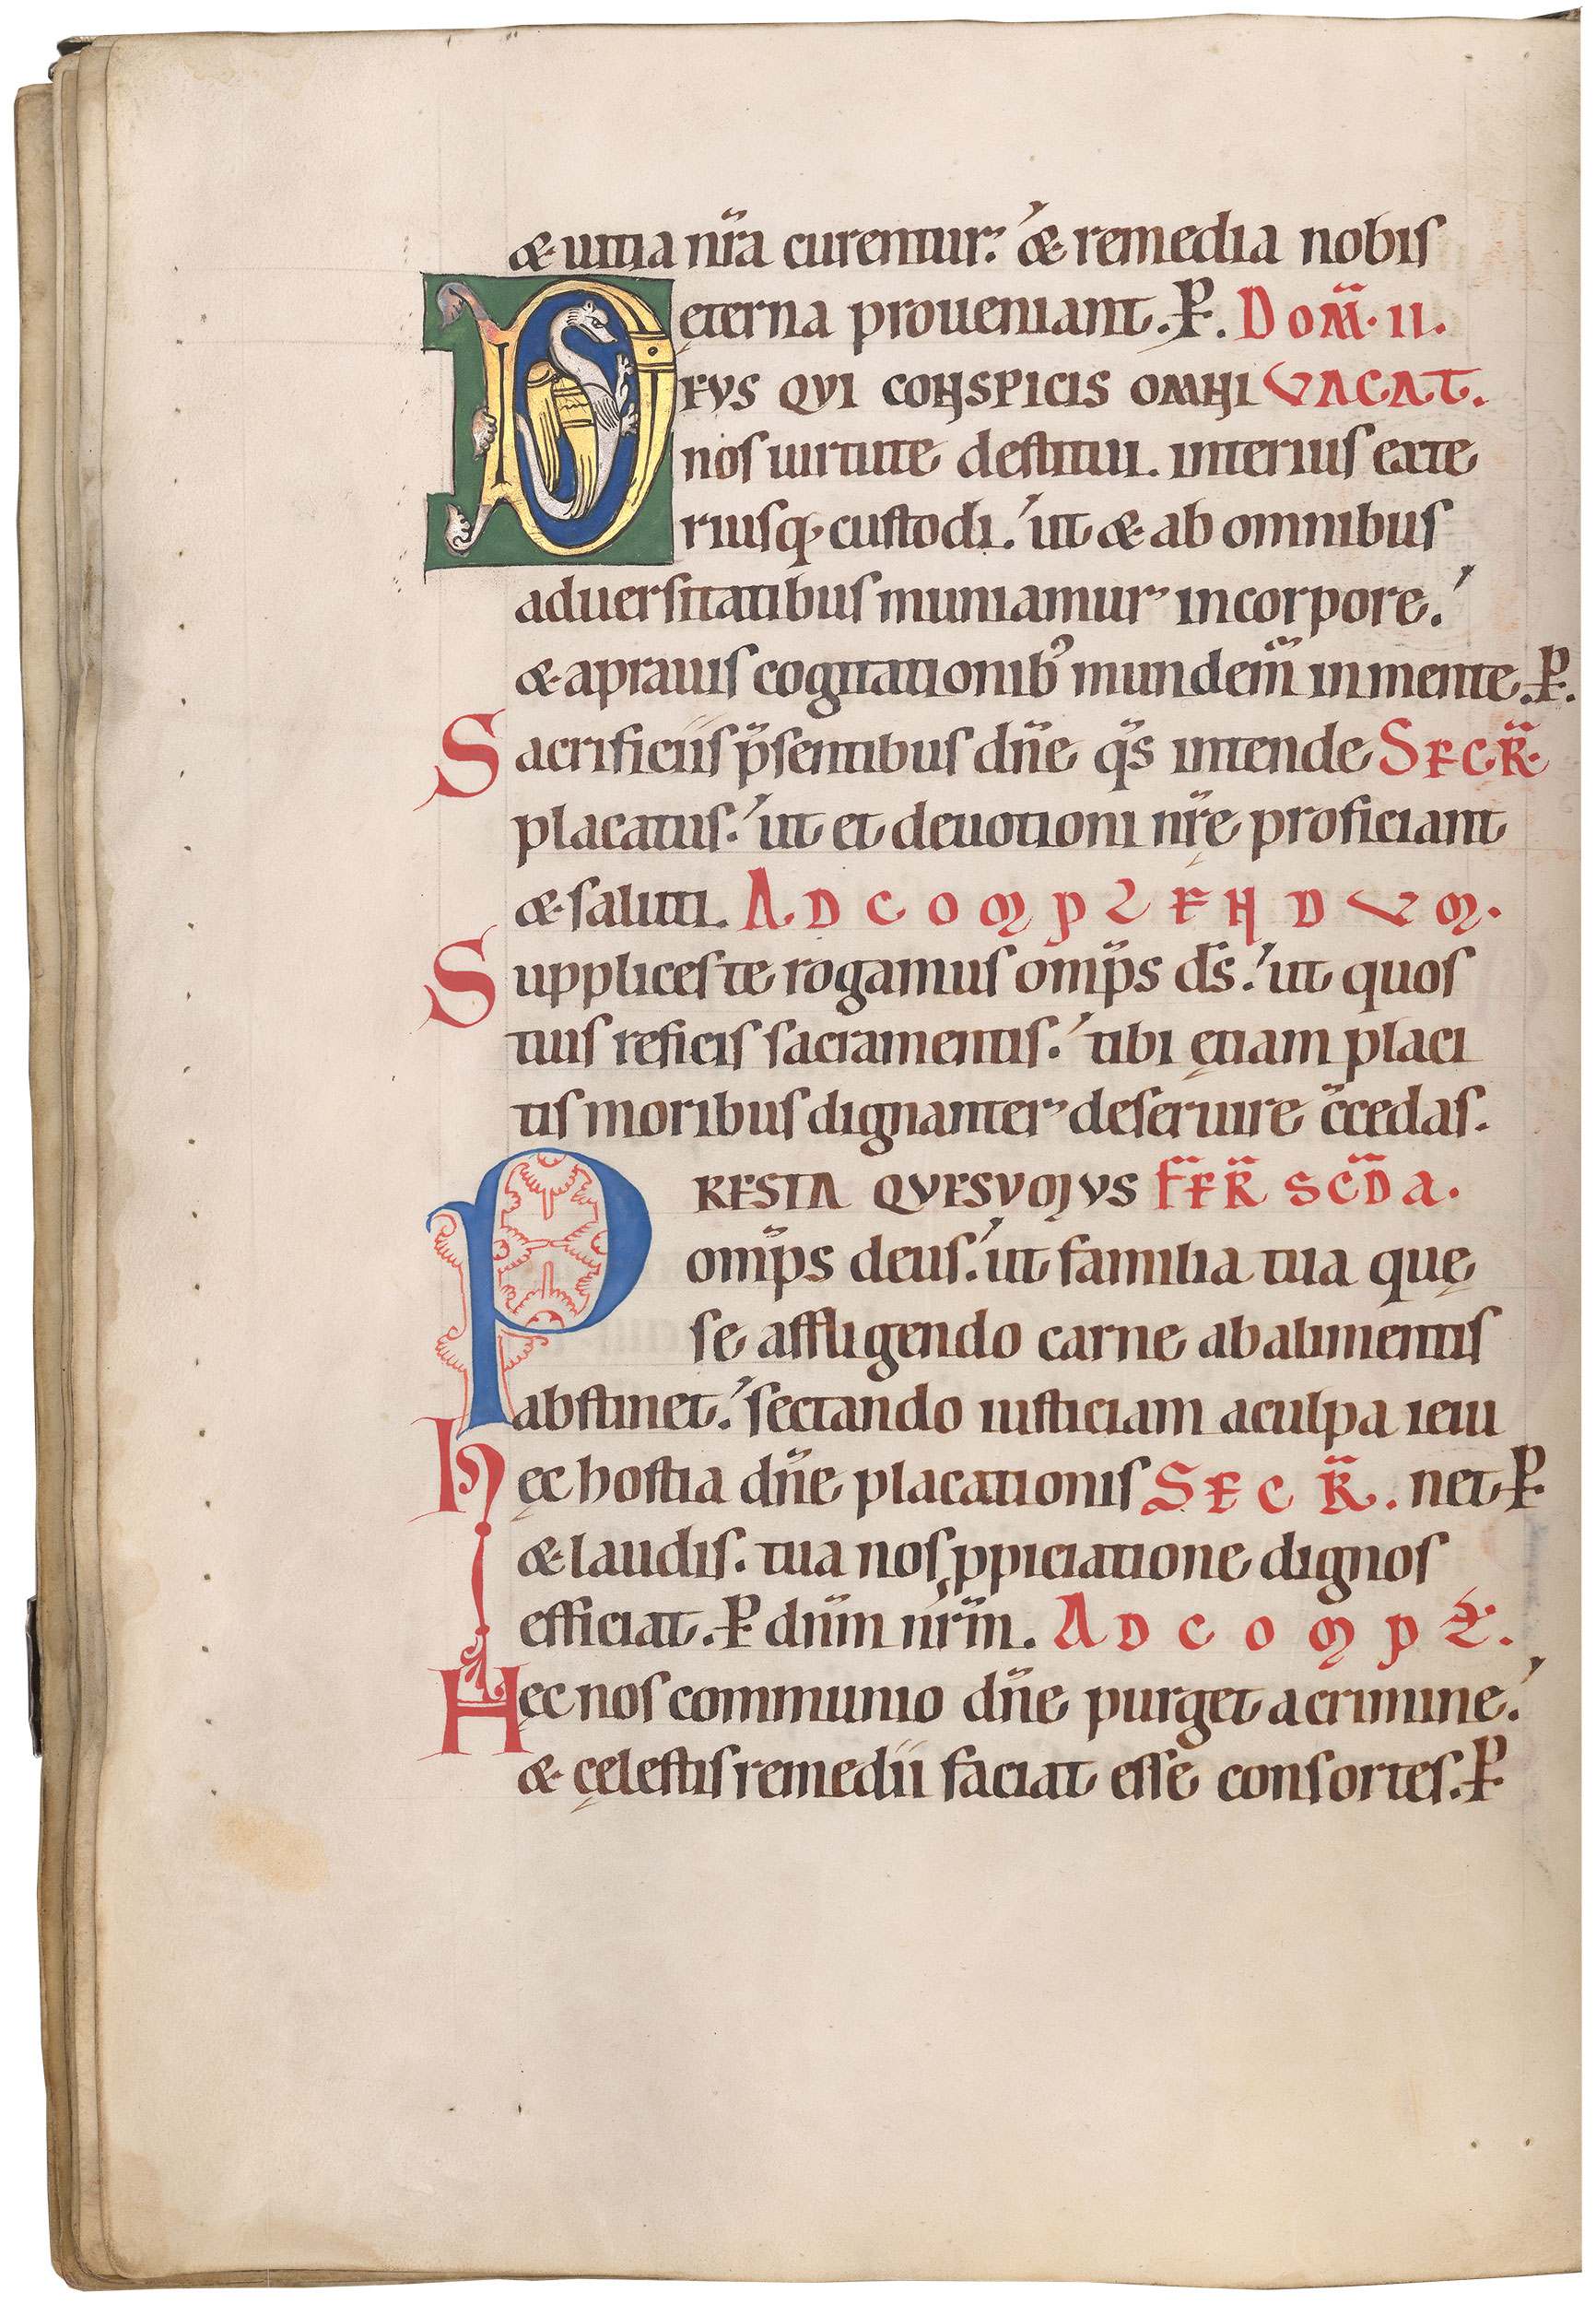 & uitia nr̄a curentur. & remedia nobis
ęterna proueniant. P. DOM̄. II.
DEUS QUI CONSPICIS OMNI VACAT.
nos uirtute destitui. interius exte
riusq; custodi. ut & ab omnibus
aduersitatibus muniamur in corpore.
& aprauis cogitationib; mundem̄ in mente. P.
Sacrificiis p̄sentibus dn̄e q̄s intende SECR̄.
placatus. ut et deuotioni nr̄ę proficiant
& saluti. AD COMPLENDUM.
Supplices te rogamus omp̄s ds̄. ut quos
tuis reficis sacramentis. tibi ętiam placi
tis moribus dignanter deseruire c̄cedas.
PRESTA QUESUMUS FER̄ SCD̄A.
omp̄s deus. ut familia tua quę
se affligendo carne ab alimentis
abstinet. sectando iusticiam a culpa ieiu
Hęc hostia dn̄e placationis SECR̄. net P
& laudis. tua nos ꝓpiciatione dignos
efficiat. P dn̄m nr̄m. AD COMPL̄.
Hęc nos communio dn̄e purget a crimine.
& cęlestis remedii faciat esse consortes. P